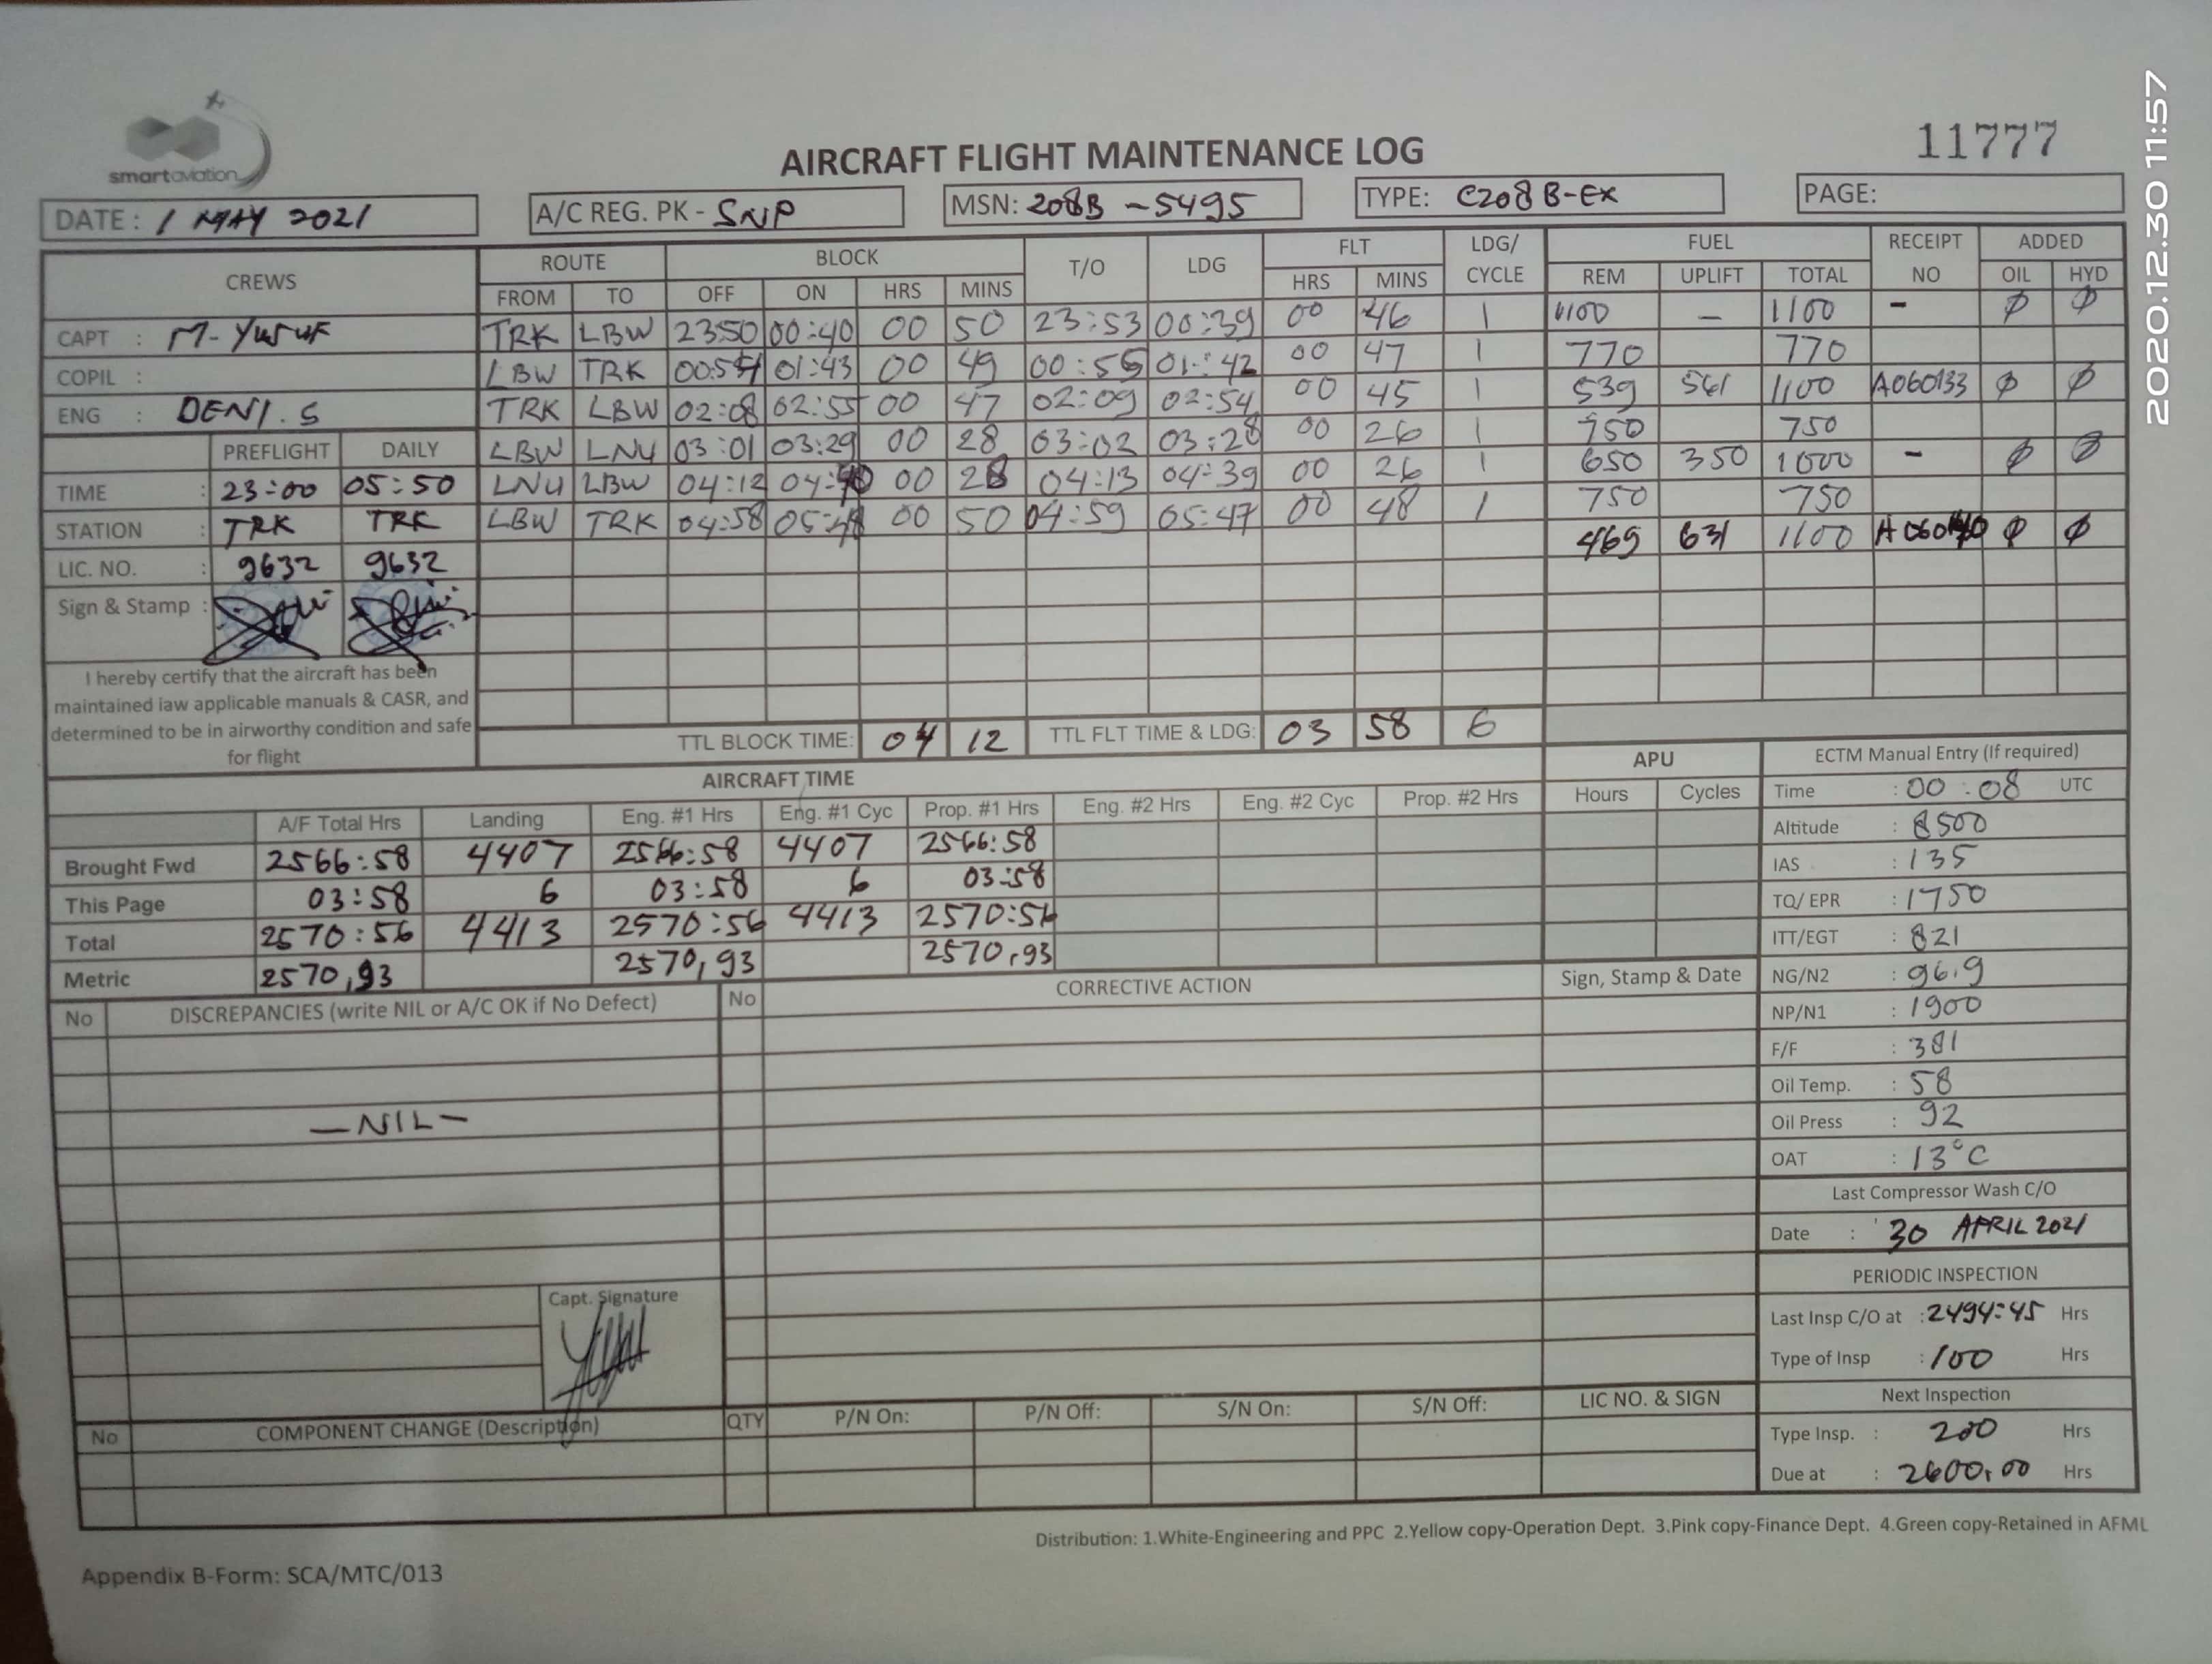 smartaviation
11777
AIRCRAFT FLIGHT MAINTENANCE LOG
2020.12.30 11:57
DATE : 1 MAY 2021 A/C REG. PK - SNP MSN: 208B - 5495 TYPE: C208B-EX PAGE:
CREWS ROUTE BLOCK T/O LDG FLT LDG/ CYCLE FUEL RECEIPT NO ADDED
FROM TO OFF ON HRS MINS HRS MINS REM UPLIFT TOTAL OIL HYD
CAPT : M. Yusuf
COPIL :
ENG : DENI.S
TRK LBW 23:50 00:40 00 50 23:53 00:39 00 46 1 1100 - 1100 - Ø Ø
LBW TRK 00:54 01:43 00 49 00:55 01:42 00 47 1 770 770
TRK LBW 02:08 02:55 00 47 02:09 02:54 00 45 1 539 561 1100 A060133 Ø Ø
LBW LNU 03:01 03:29 00 28 03:02 03:28 00 26 1 750 750
LNU LBW 04:12 04:40 00 28 04:13 04:39 00 26 1 650 350 1000 - Ø Ø
LBW TRK 04:58 05:48 00 50 04:59 05:47 00 48 1 750 750
469 631 1100 Ø Ø
PREFLIGHT DAILY
TIME : 23:00 05:50
STATION : TRK TRK
LIC. NO. : 9632 9632
Sign & Stamp :
I hereby certify that the aircraft has been
maintained iaw applicable manuals & CASR, and
determined to be in airworthy condition and safe
for flight
TTL BLOCK TIME: 04 12 TTL FLT TIME & LDG: 03 58 6
AIRCRAFT TIME APU
A/F Total Hrs Landing Eng. #1 Hrs Eng. #1 Cyc Prop. #1 Hrs Eng. #2 Hrs Eng. #2 Cyc Prop. #2 Hrs Hours Cycles
Brought Fwd 2566:58 4407 2566:58 4407 2566:58
This Page 03:58 6 03:58 6 03:58
Total 2570:56 4413 2570:56 4413 2570:56
Metric 2570,93 2570,93 2570,93
ECTM Manual Entry (If required)
Time : 00:08 UTC
Altitude : 8500
IAS : 135
TQ/ EPR : 1750
ITT/EGT : 821
NG/N2 : 96.9
NP/N1 : 1900
F/F : 381
Oil Temp. : 58
Oil Press : 92
OAT : 13°C
Last Compressor Wash C/O
Date : 30 APRIL 2021
PERIODIC INSPECTION
Last Insp C/O at : 2494:45 Hrs
Type of Insp : 100 Hrs
Next Inspection
Type Insp. : 200 Hrs
Due at : 2600,00 Hrs
No DISCREPANCIES (write NIL or A/C OK if No Defect) No CORRECTIVE ACTION Sign, Stamp & Date
—NIL—
Capt. Signature
No COMPONENT CHANGE (Description) QTY P/N On: P/N Off: S/N On: S/N Off: LIC NO. & SIGN
Distribution: 1.White-Engineering and PPC 2.Yellow copy-Operation Dept. 3.Pink copy-Finance Dept. 4.Green copy-Retained in AFML
Appendix B-Form: SCA/MTC/013